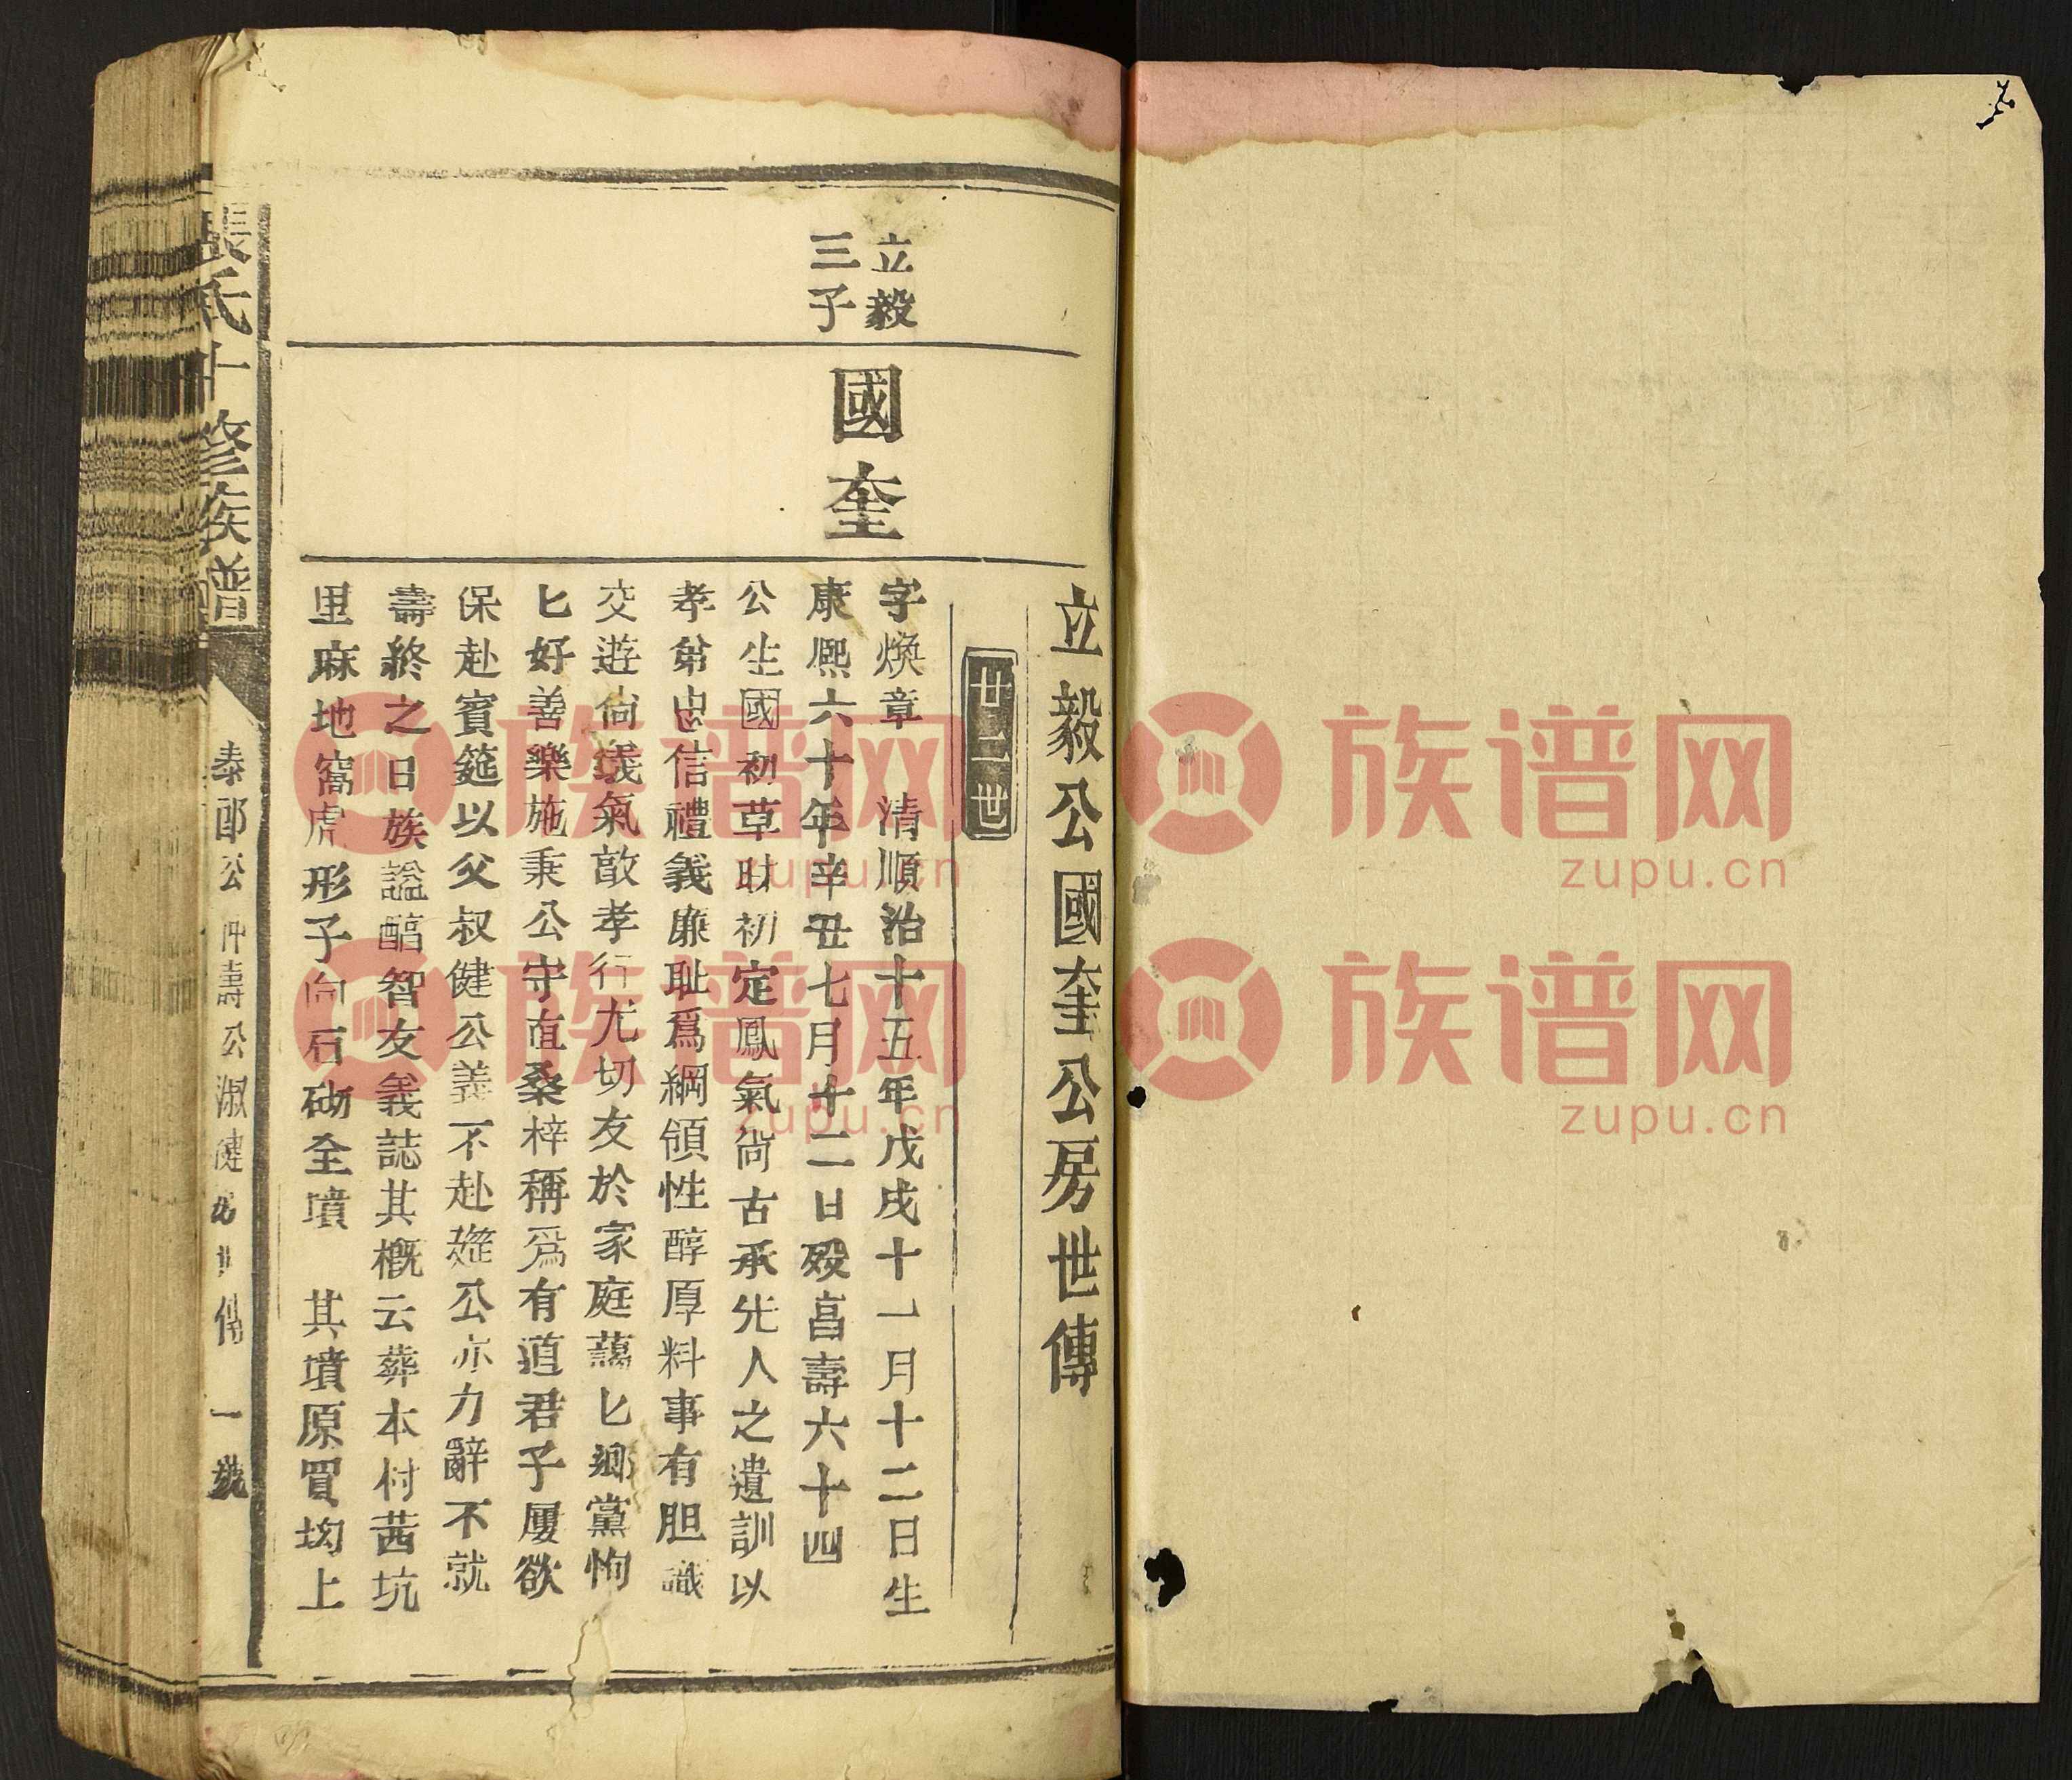 立毅公國奎公房世傳
廿二世
立毅
三子
國奎
字煥章 清順治十五年戊戌十一月十二日生
康熙六十年辛丑七月十二日歿昌壽六十四
公生國初草昧初定鳳氣尙古承先人之遺訓以
孝弟忠信禮義廉恥爲綱領性醇厚料事有胆識
交遊尙義氣敵孝行尤切友於家庭藹匕鄉黨恂
匕好善樂施秉公守直桑梓稱爲有道君子屢欲
保赴賓筵以父叔健公義不赴筵公亦力辭不就
壽終之日族謚醇智友義誌其概云葬本村茜坑
里麻地窩虎形子向石砌全墳 其墳原買坳上
張氏十修族譜
泰郎公仲壽公淑漣公世傳 一號
族谱网
zupu.cn
族谱网
zupu.cn
族谱网
zupu.cn
族谱网
zupu.cn